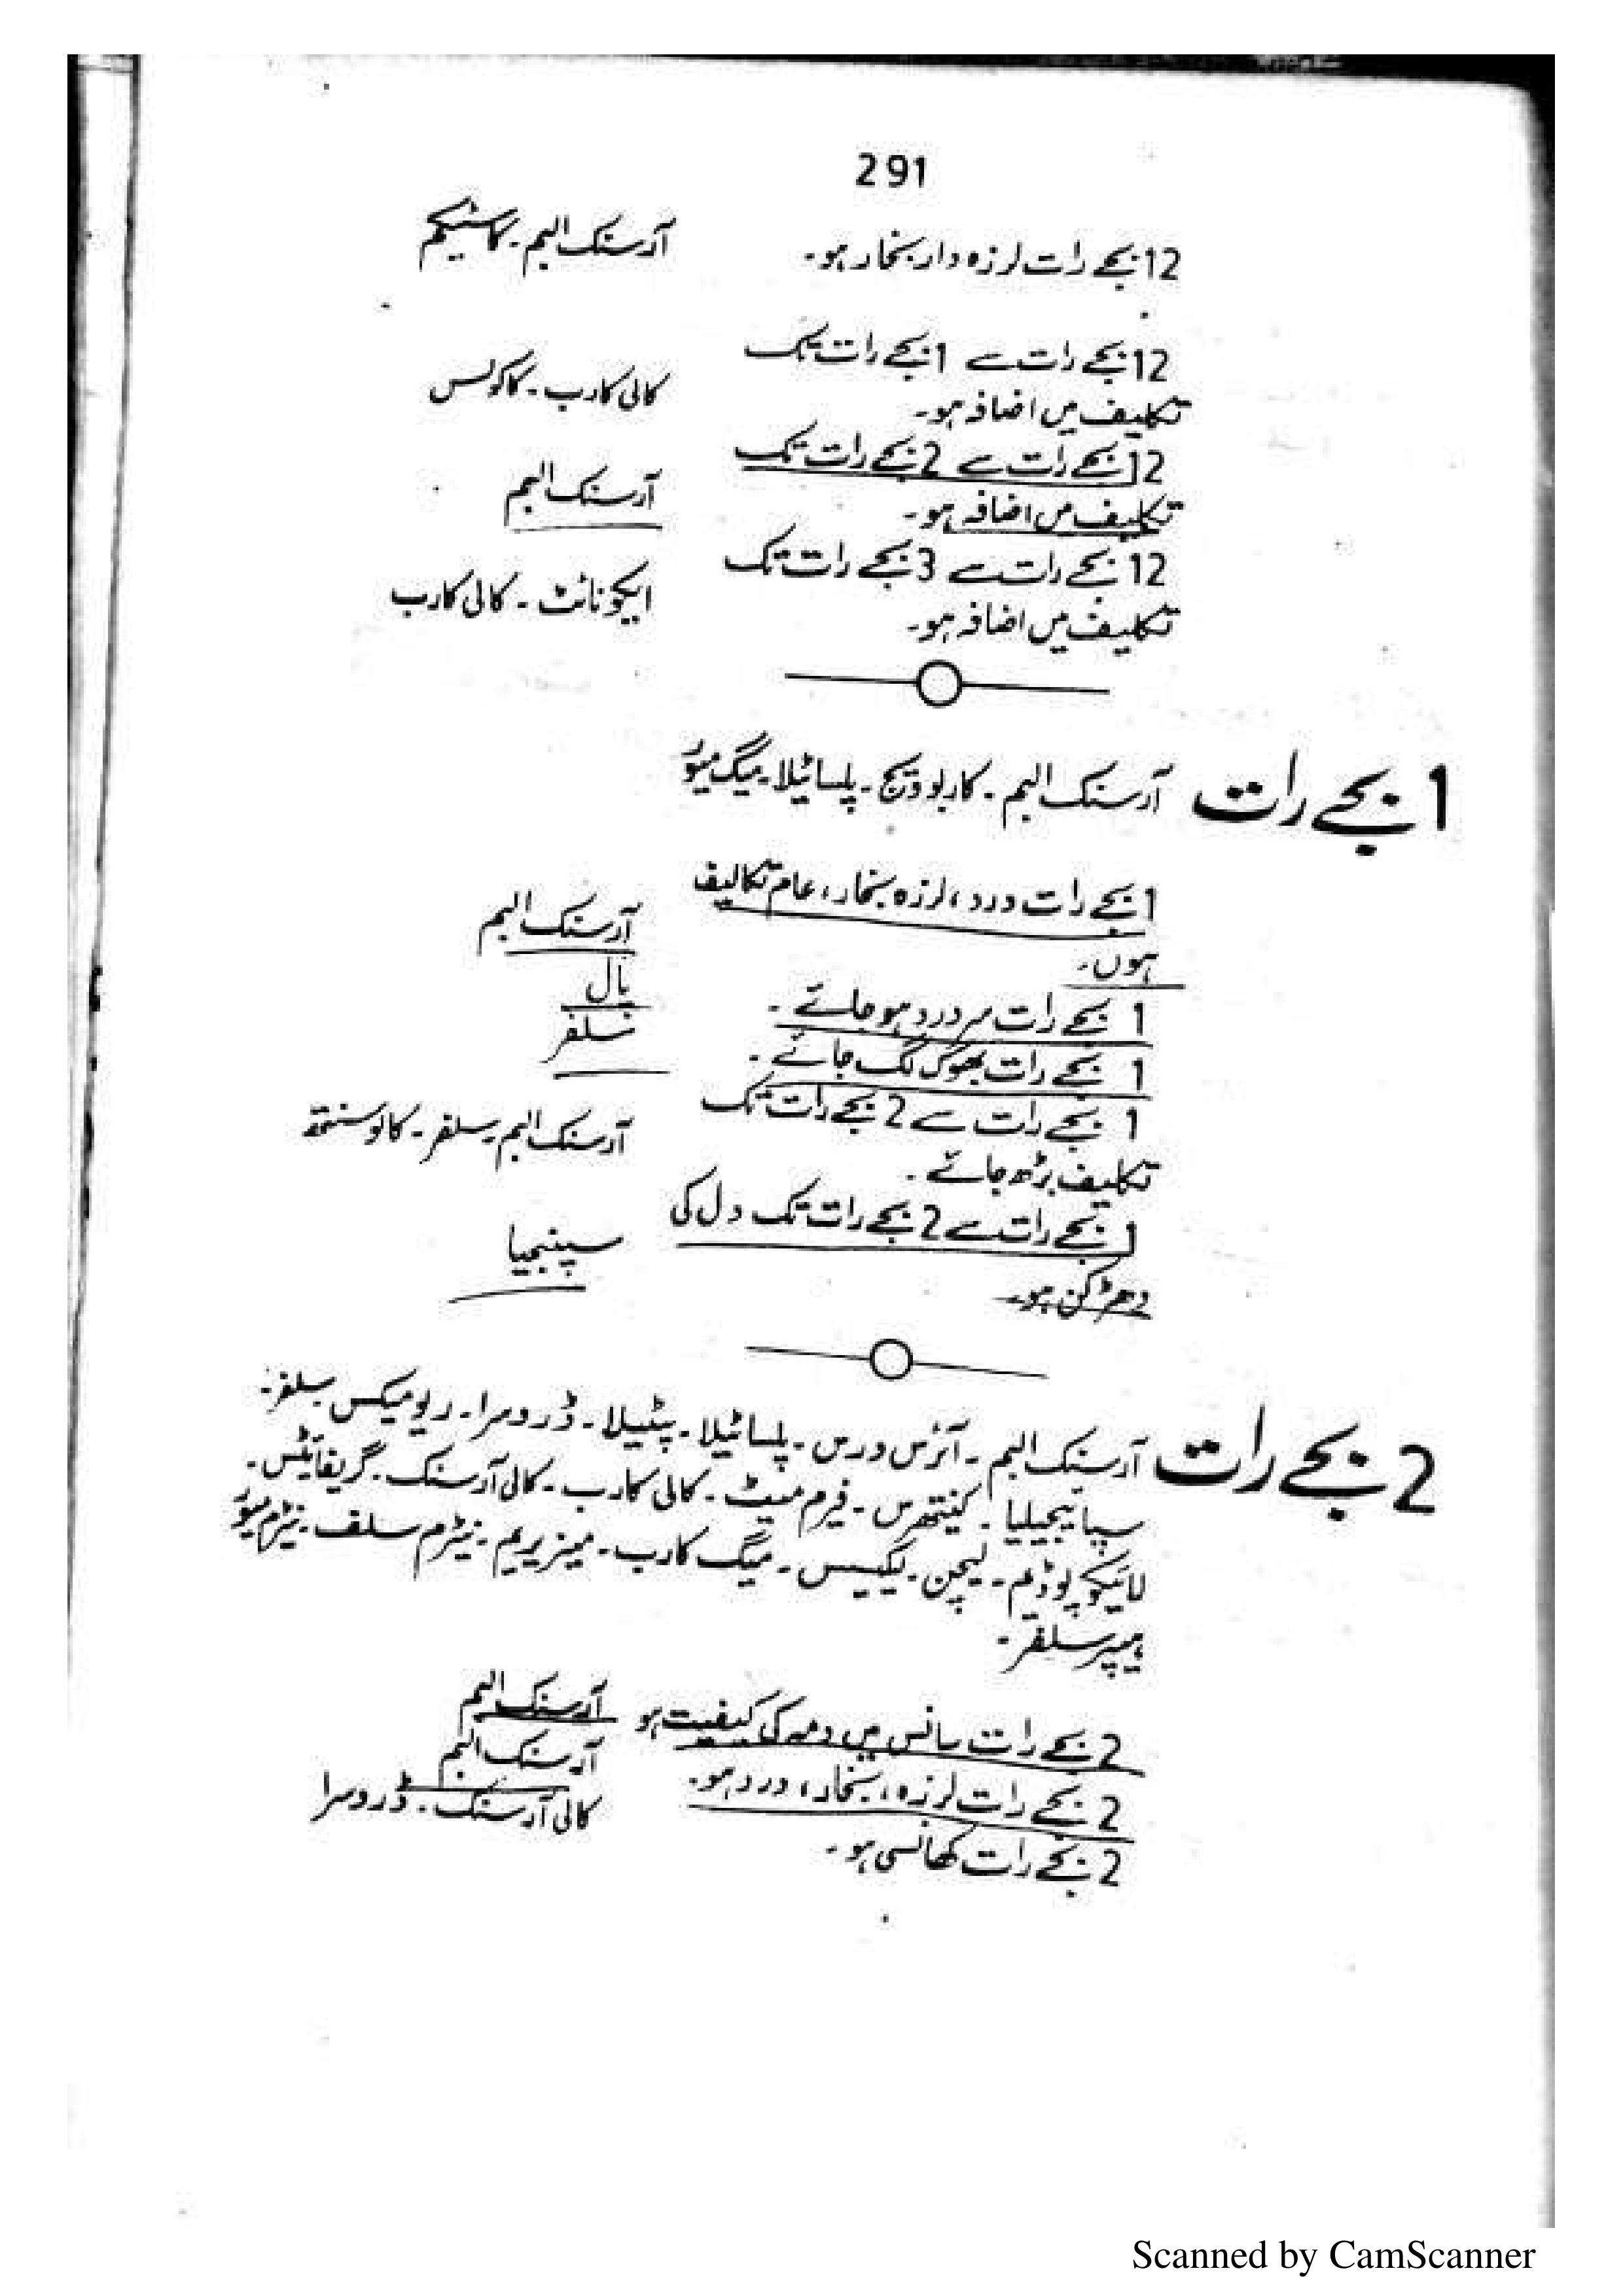 291
12 بجے رات لرزہ دار بخار ہو۔ آرسنک البم۔ کاسٹیکم
12 بجے رات سے 1 بجے رات تک
تکلیف میں اضافہ ہو۔ کالی کارب۔ کاکولس
12 بجے رات سے 2 بجے رات تک
تکلیف میں اضافہ ہو۔ آرسنک البم
12 بجے رات سے 3 بجے رات تک
تکلیف میں اضافہ ہو۔ ایکونائٹ۔ کالی کارب
1 بجے رات آرسنک البم۔ کاربوویج۔ پلساٹیلا۔ میگ میور
1 بجے رات درد، لرزہ بخار، عام تکالیف
ہوں۔ آرسنک البم
1 بجے رات سر درد ہو جائے۔ پال
1 بجے رات بھوک لگ جائے۔ سلفر
1 بجے رات سے 2 بجے رات تک
تکلیف بڑھ جائے۔ آرسنک البم۔ سلفر۔
1 بجے رات سے 2 بجے رات تک دل کی
دھڑکن ہو۔ سپنجیا
2 بجے رات آرسنک البم۔ آئرس ورس۔ پلساٹیلا۔ پٹیلا۔ ڈروسرا۔ ریومیکس۔ سلفر۔
سپائیجیلیا۔ کینتھرس۔ فیرم میٹ۔ کالی کارب۔ کالی آرسنک۔ گریفائٹس۔
لائیکوپوڈیم۔ لیچن۔ لیکیسس۔ میگ کارب۔ میزیریم۔ نیٹرم سلف۔ نیٹرم میور
ہیپر سلفر۔
2 بجے رات سانس میں دمہ کی کیفیت ہو آرسنک البم
2 بجے رات لرزہ، بخار، درد ہو۔ آرسنک البم
2 بجے رات کھانسی ہو۔ کالی آرسنک۔ ڈروسرا
Scanned by CamScanner